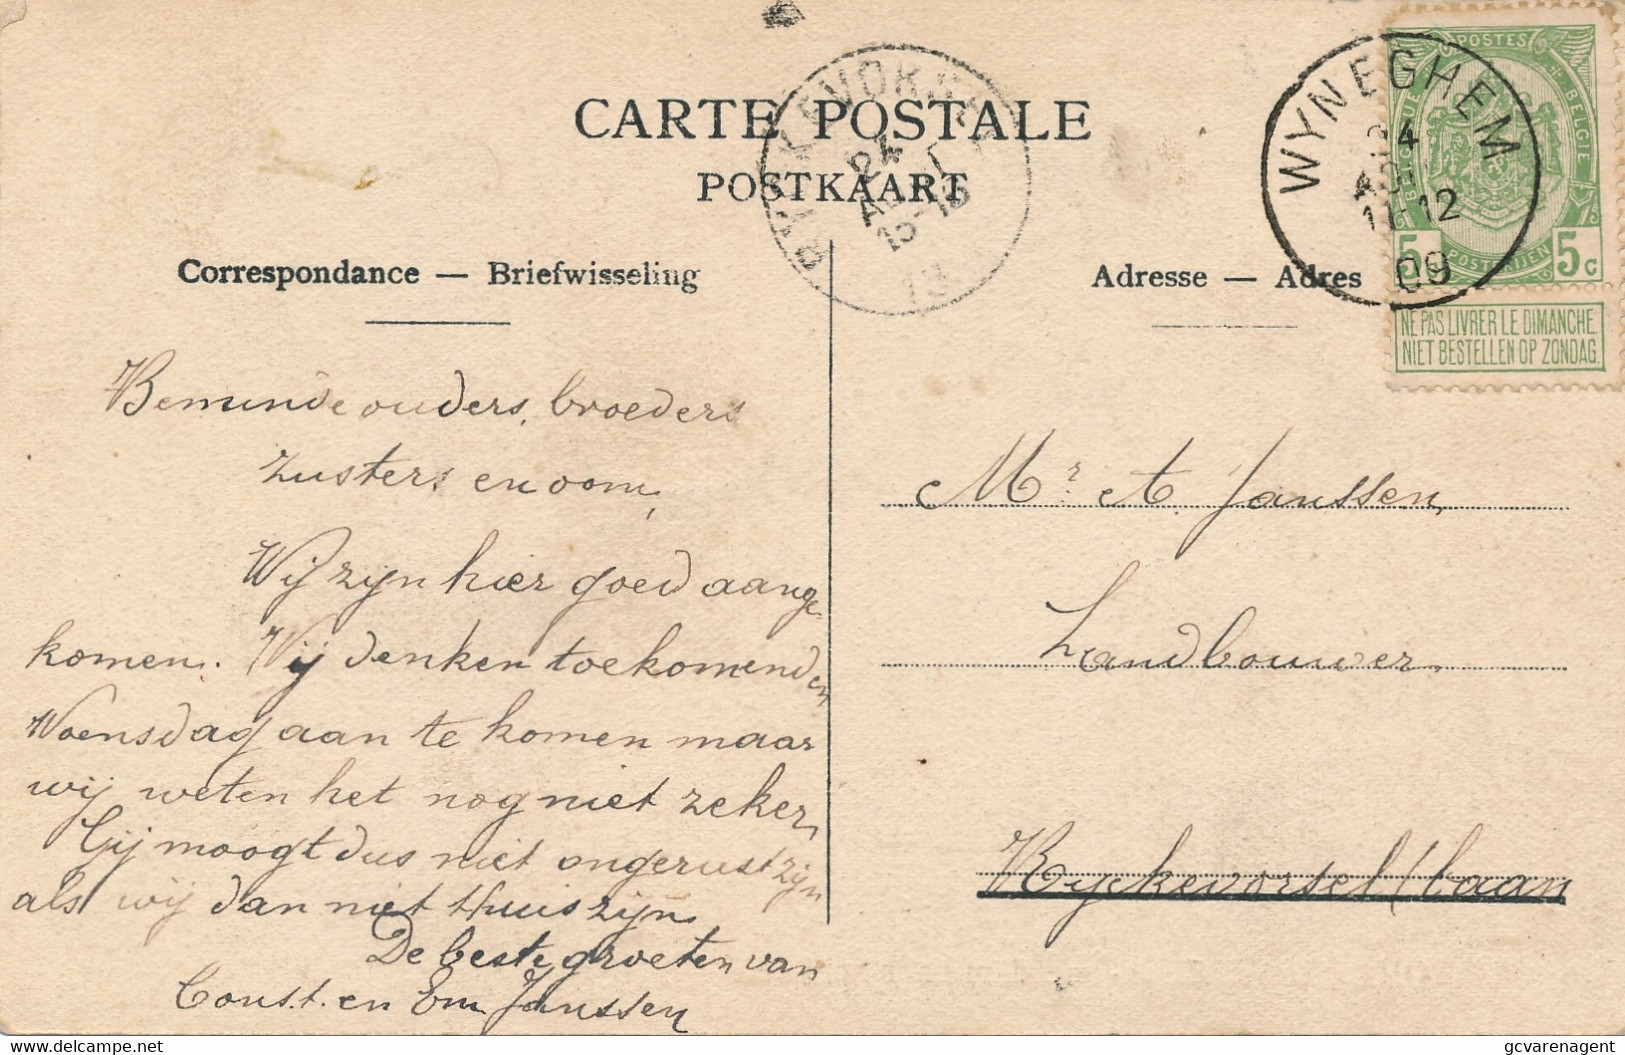 CARTE POSTALE
POSTKAART
Correspondance — Briefwisseling
Beminde ouders, broeders
zusters en oom,
Wij zijn hier goed aange
komen. Wij denken toekomenden
Woensdag aan te komen maar
wij weten het nog niet zeker,
Gij moogt dus niet ongerust zijn
als wij dan niet thuis zijn
De beste groeten van
Const. en Em Janssen
Adresse — Adres
Mr A. Janssen,
Landbouwer,
Ryckevorsel/baan
WYNEGHEM
11-12
09
24
15-16
POSTES
BELGIQUE BELGIE
5 5c
POSTERIJEN
NE PAS LIVRER LE DIMANCHE.
NIET BESTELLEN OP ZONDAG.
Delcampe.net
gcvarenagent